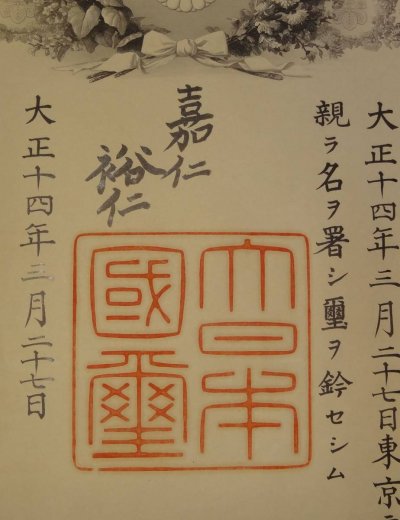 大正十四年三月二十七日東京
親ラ名ヲ署シ璽ヲ鈐セシム
嘉仁
裕仁
大日本
國璽
大正十四年三月二十七日